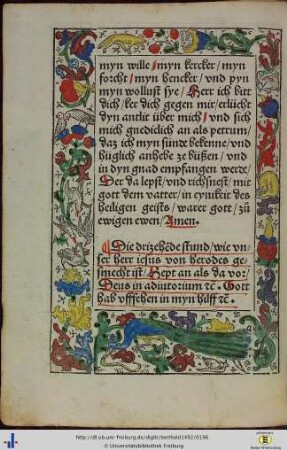 myn wille / myn kercker / myn
forcht / myn hencker / vnd pyn
myn wollust sye / Herr ich bitt
dich / ker dich gegen mir / erlücht
dyn antlit über mich / vnd sich
mich gnediclich an als petrum /
daz ich myn sünd bekenne / vnd
büglich anhebe ze büßen / vnd
in dyn gnad empfangen werd /
Der da lepst / vnd richsnest / mit
gott dem vatter / in eynikeit des
heiligen geists / warer gott / zů
ewigen ewen / Amen.
Die drizehēde stund / wie vn
ser herr iesus von herodes ge
smecht ist / Sept an als da vor /
Deus in adiutorium ⁊c̄. Gott
hab vffsehen in myn hilff ⁊c̄.
http://dl.ub.uni-freiburg.de/diglit/berthold1492/0196
© Universitätsbibliothek Freiburg